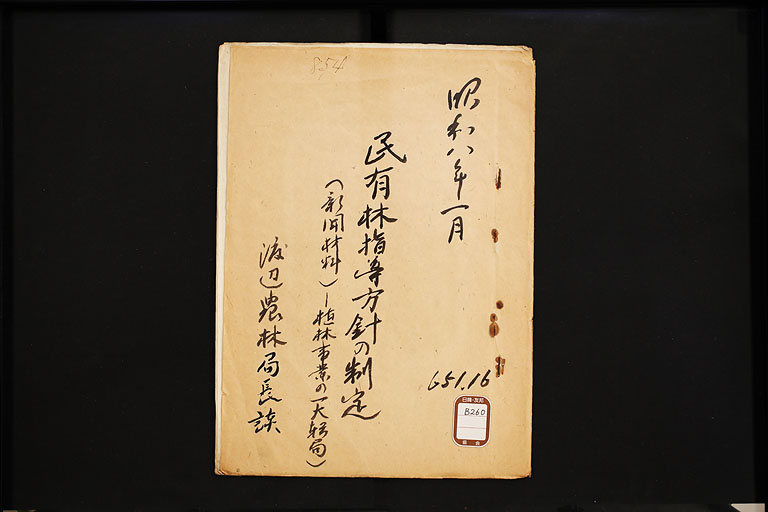 昭和八年一月
民有林指導方針の制定
(新聞材料)ー植林事業の一大転局)
渡辺農林局長談
854
651.16
日韓・友邦
B260
協会